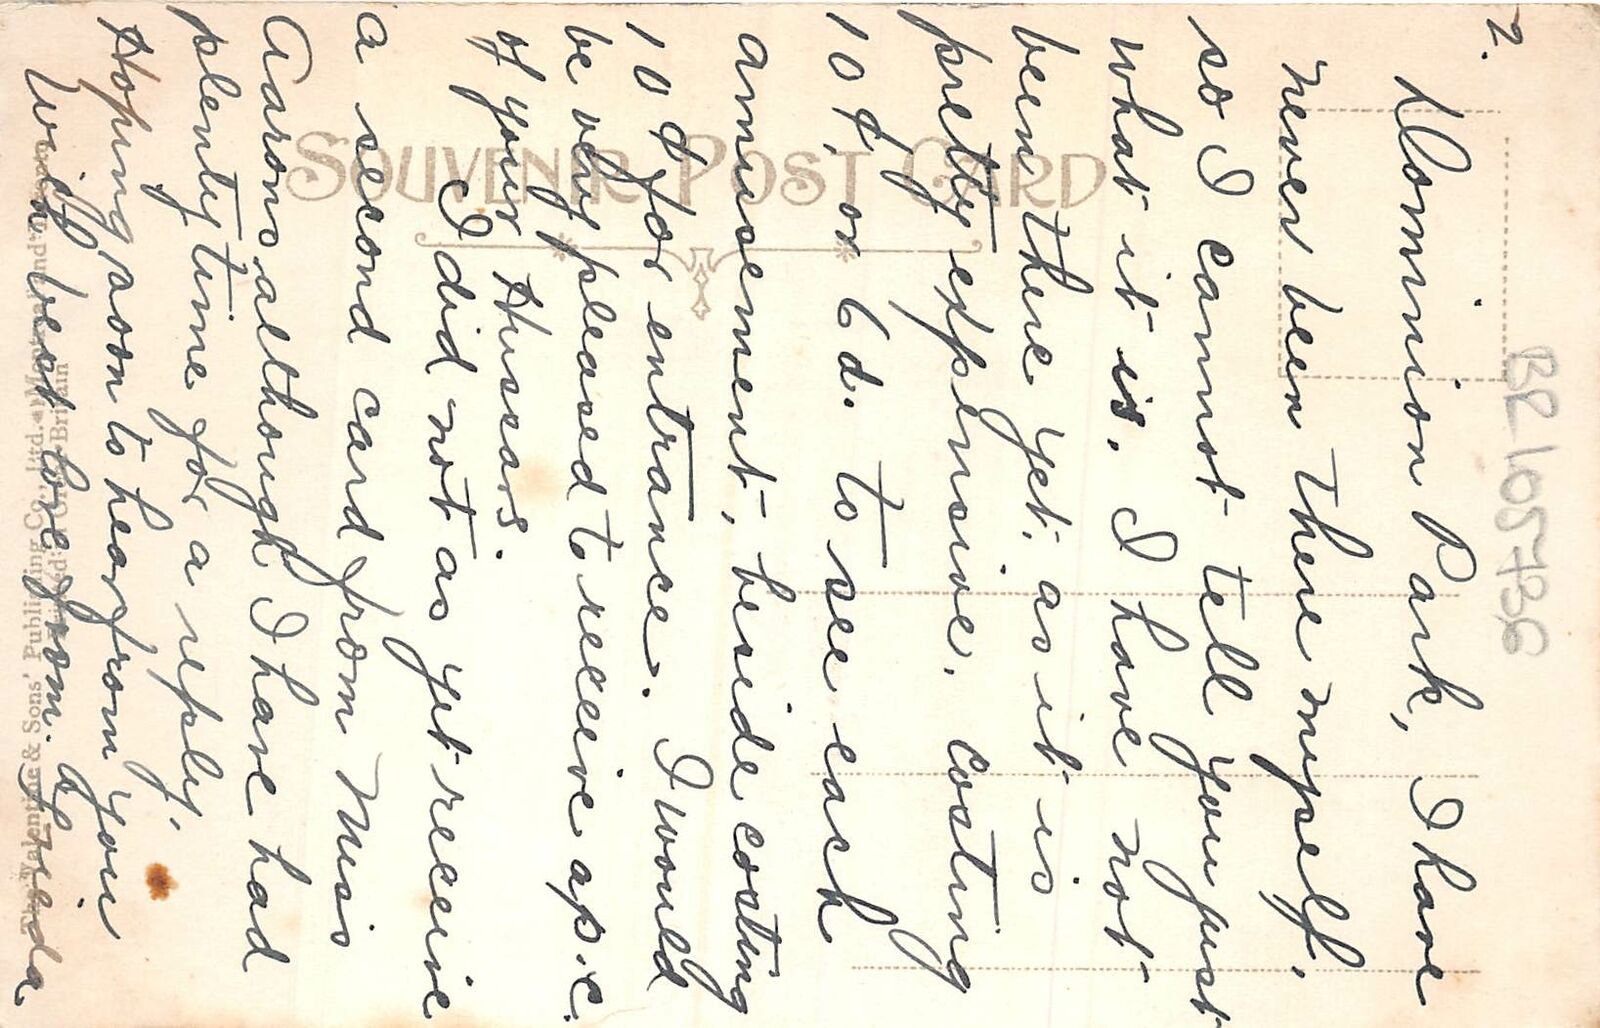 2.
Dominion Park, I have
never been there myself,
so I cannot tell you just
what it is. I have not
been there yet, as it is
pretty expensive, costing
10¢, or 6d. to see each
amusement, beside costing
10¢ for entrance. I would
be very pleased to receive a p.c.
of your Hussars.
I did not as yet receive
a second card from Miss
Aarons, although I have had
plenty time for a reply.
Hoping soon to hear from you
With best love from.
SOUVENIR POST CARD
The Valentine & Sons' Publishing Co., Ltd.
BR105736